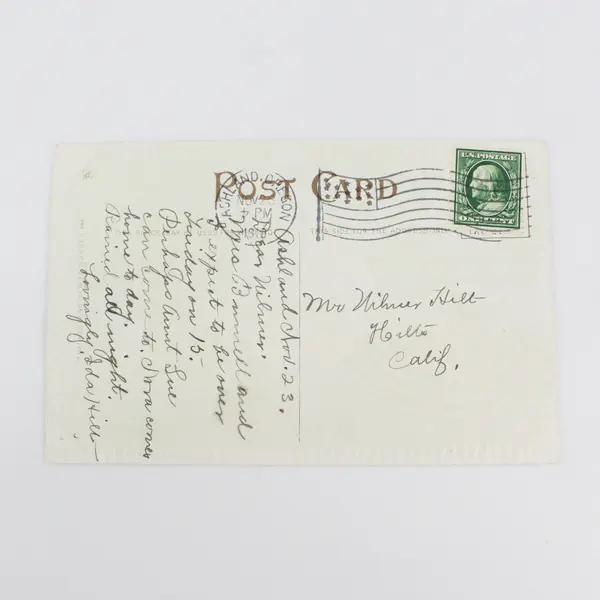 POST CARD
ASHLAND, OREGON
NOV 23
4 PM
U.S. POSTAGE
ONE CENT
THIS SIDE FOR THE ADDRESS
Ashland Nov. 23.
Dear Wilmer.
Mrs and
I expect to be over
Sunday on 15-
Perhaps Aunt Sue
can come to. Nora comes
home to day.
Rained all night.
Lovingly, Ida Hilt
Mr Wilmer Hilt
Hilts
Calif.